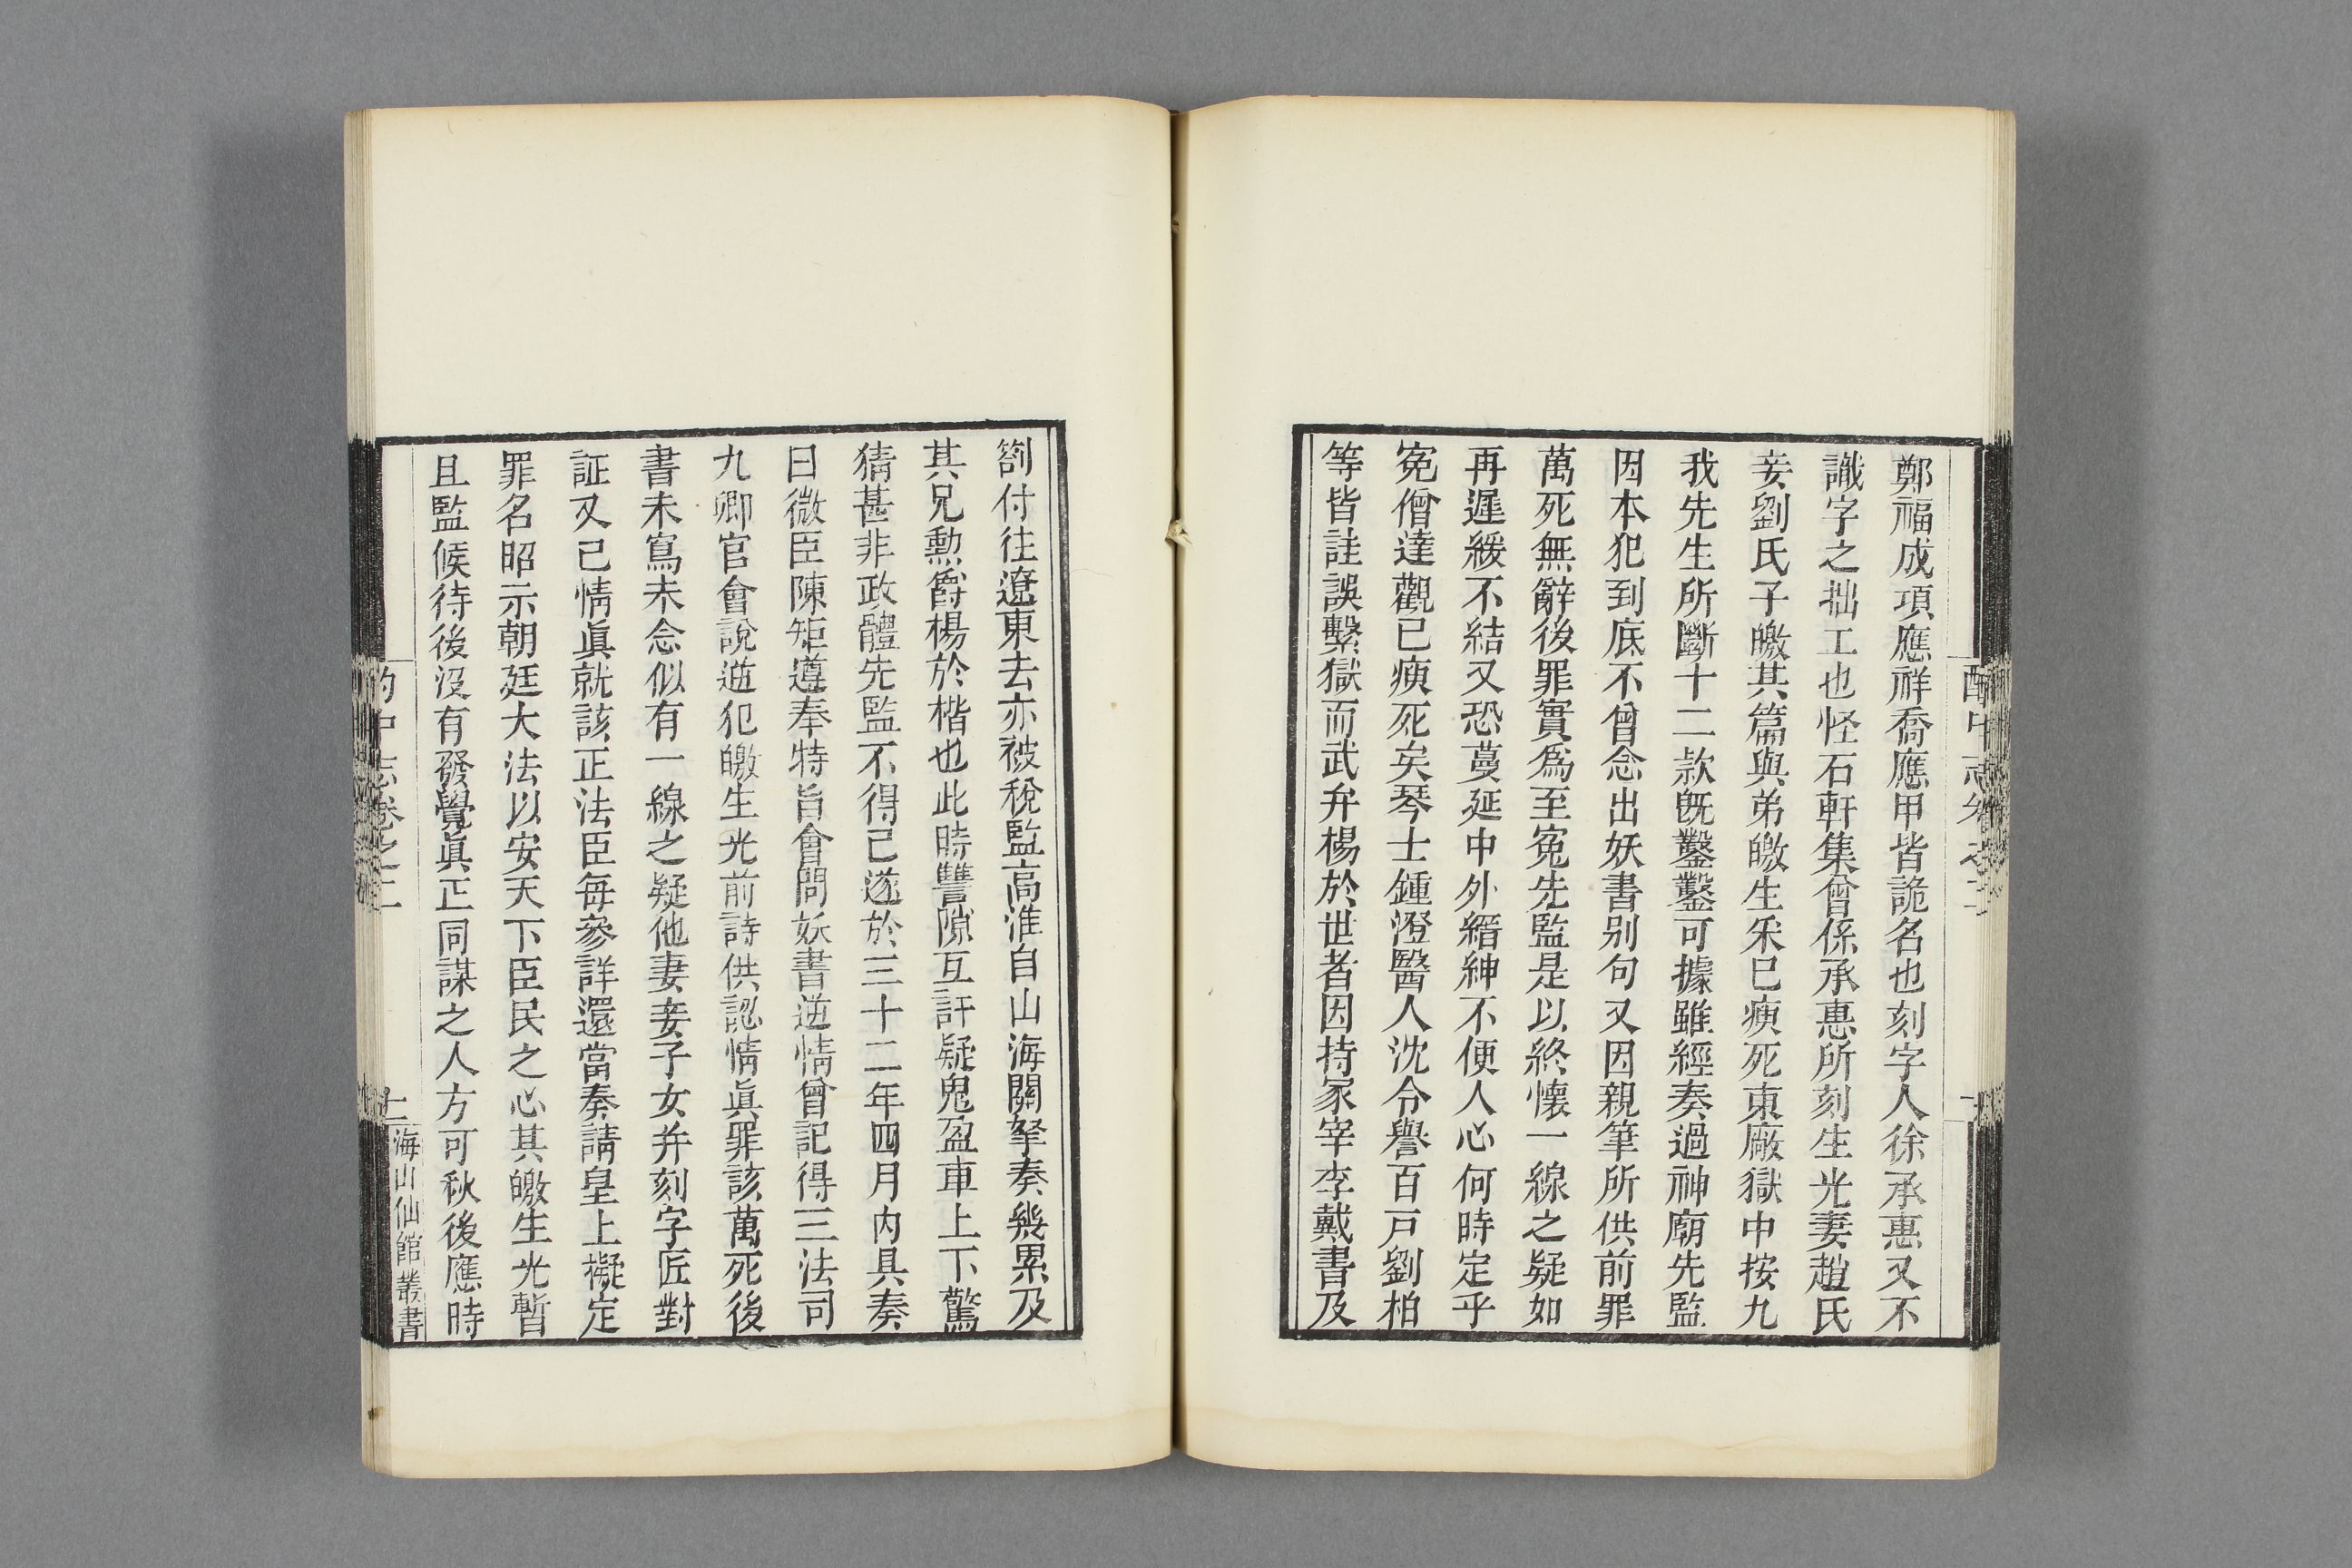 鄭福成項應祥喬應甲皆詭名也刻字人徐承惠又不
識字之拙工也怪石軒集曾係承惠所刻生光妻趙氏
妾劉氏子皦其篇與弟皦生釆已瘐死東廠獄中按九
我先生所斷十二款旣鑿鑿可據雖經奏過神廟先監
因本犯到底不曾念出妖書別句又因親筆所供前罪
萬死無辭後罪實爲至寃先監是以終懷一線之疑如
再遲緩不結又恐蔓延中外縉紳不便人心何時定乎
寃僧達觀已瘐死矣琴士鍾澄醫人沈令譽百戸劉柏
等皆詿誤繫獄而武弁楊於世者因持冢宰李戴書及
劄付往遼東去亦被稅監高淮自山海關拏奏幾累及
其兄勲爵楊於楷也此時讐隙互訐疑鬼盈車上下驚
猜甚非政體先監不得已遂於三十二年四月内具奏
曰微臣陳矩遵奉特旨會問妖書逆情曾記得三法司
九卿官會說逆犯皦生光前詩供認情眞罪該萬死後
書未寫未念似有一線之疑他妻妾子女并刻字匠對
証又已情眞就該正法臣每參詳還當奏請皇上擬定
罪名昭示朝廷大法以安天下臣民之心其皦生光暫
且監候待後沒有發覺眞正同謀之人方可秋後應時
酌中志卷之二
海山仙館叢書